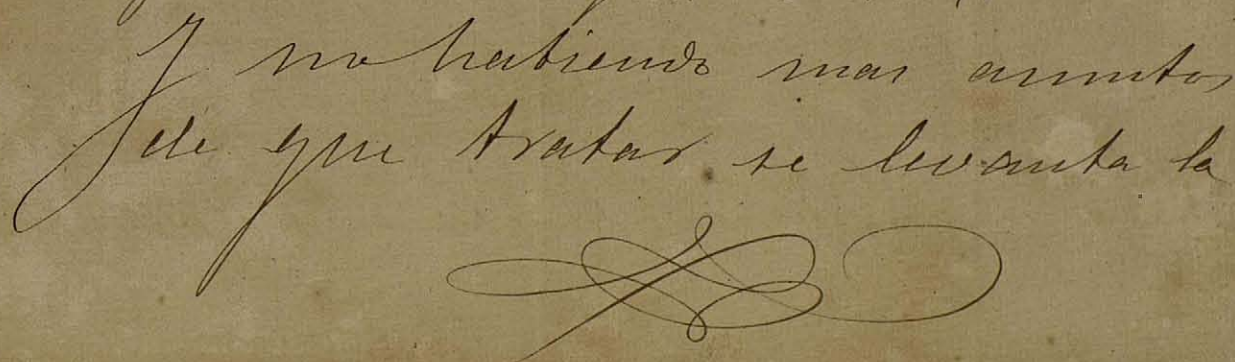 Y no habiendo mas asuntos
de que tratar se levanta la